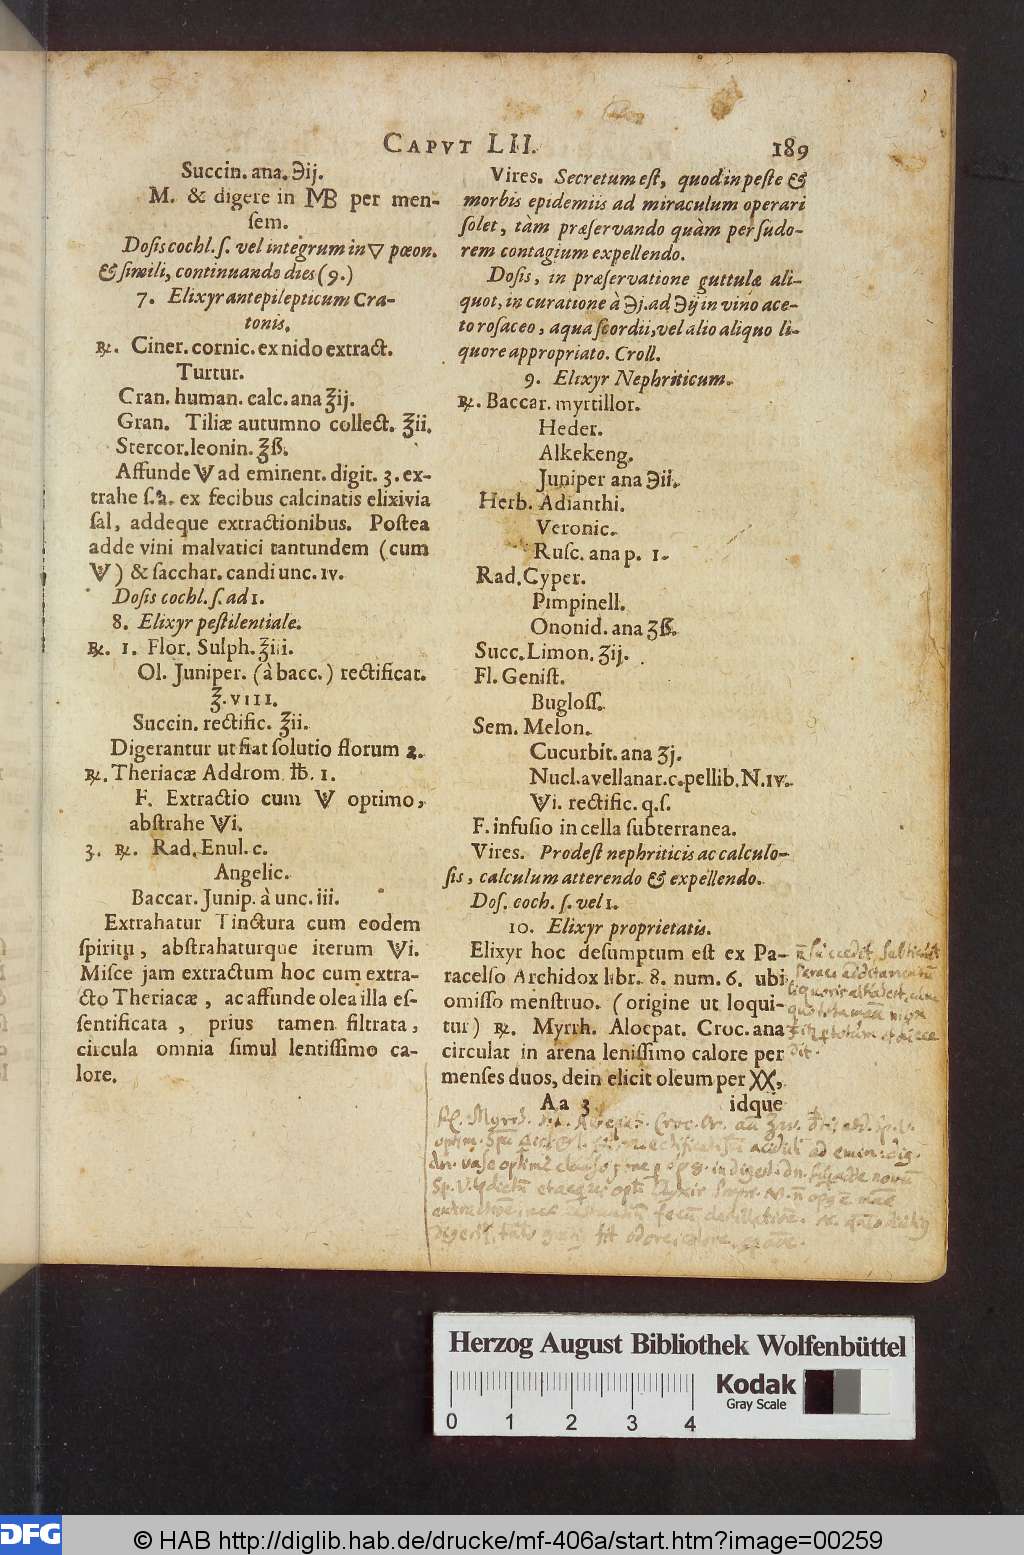 CAPVT LII. 189
Succin. ana. ℈ij.
M. & digere in MB per men-
sem.
Dosis cochl. ſ. vel integrum in ▽ pœon.
& simili, continuando dies (9.)
7. Elixyr antepilepticum Cra-
tonis.
℞. Ciner. cornic. ex nido extract.
Turtur.
Cran. human. calc. ana ℥ij.
Gran. Tiliæ autumno collect. ℥ii.
Stercor. leonin. ℥ß.
Affunde V ad eminent. digit. 3. ex-
trahe ſ. a. ex fecibus calcinatis elixivia
ſal, addeque extractionibus. Poſtea
adde vini malvatici tantundem (cum
V) & ſacchar. candi unc. IV.
Doſis cochl. ſ. ad 1.
8. Elixyr peſtilentiale.
℞. 1. Flor. Sulph. ℥iii.
Ol. Juniper. (à bacc.) rectificat.
℥. VIII.
Succin. rectific. ℥ii.
Digerantur ut fiat ſolutio florum 2.
℞. Theriacæ Addrom. ℔. 1.
F. Extractio cum V optimo,
abſtrahe Vi.
3. ℞. Rad. Enul. c.
Angelic.
Baccar. Junip. à unc. iii.
Extrahatur Tinctura cum eodem
ſpiritu, abſtrahaturque iterum Vi.
Miſce jam extractum hoc cum extra-
cto Theriacæ, ac affunde olea illa eſ-
ſentificata, prius tamen filtrata,
circula omnia ſimul lentiſſimo ca-
lore.
Vires. Secretum eſt, quod in peſte &
morbis epidemiis ad miraculum operari
ſolet, tàm præſervando quàm per ſudo-
rem contagium expellendo.
Doſis, in præſervatione guttulæ ali-
quot, in curatione à ℈j. ad ℈ij in vino ace-
to roſaceo, aqua ſcordii, vel alio aliquo li-
quore appropriato. Croll.
9. Elixyr Nephriticum.
℞. Baccar. myrtillor.
Heder.
Alkekeng.
Juniper ana ℈ii.
Herb. Adianthi.
Veronic.
Ruſc. ana p. 1.
Rad. Cyper.
Pimpinell.
Ononid. ana ʒß.
Succ. Limon. ʒij.
Fl. Geniſt.
Bugloſſ.
Sem. Melon.
Cucurbit. ana ʒj.
Nucl. avellanar. c. pellib. N. IV.
Vi. rectific. q. ſ.
F. infuſio in cella ſubterranea.
Vires. Prodeſt nephriticis ac calculo-
ſis, calculum atterendo & expellendo.
Doſ. coch. ſ. vel 1.
10. Elixyr proprietatis.
Elixyr hoc deſumptum eſt ex Pa-
racelſo Archidox libr. 8. num. 6. ubi
omiſſo menſtruo. (origine ut loqui-
tur) ℞. Myrrh. Aloepat. Croc. ana
circulat in arena leniſſimo calore per
menſes duos, dein elicit oleum per XX,
Aa 3 idque
Herzog August Bibliothek Wolfenbüttel
Kodak
Gray Scale
0 1 2 3 4
DFG © HAB http://diglib.hab.de/drucke/mf-406a/start.htm?image=00259